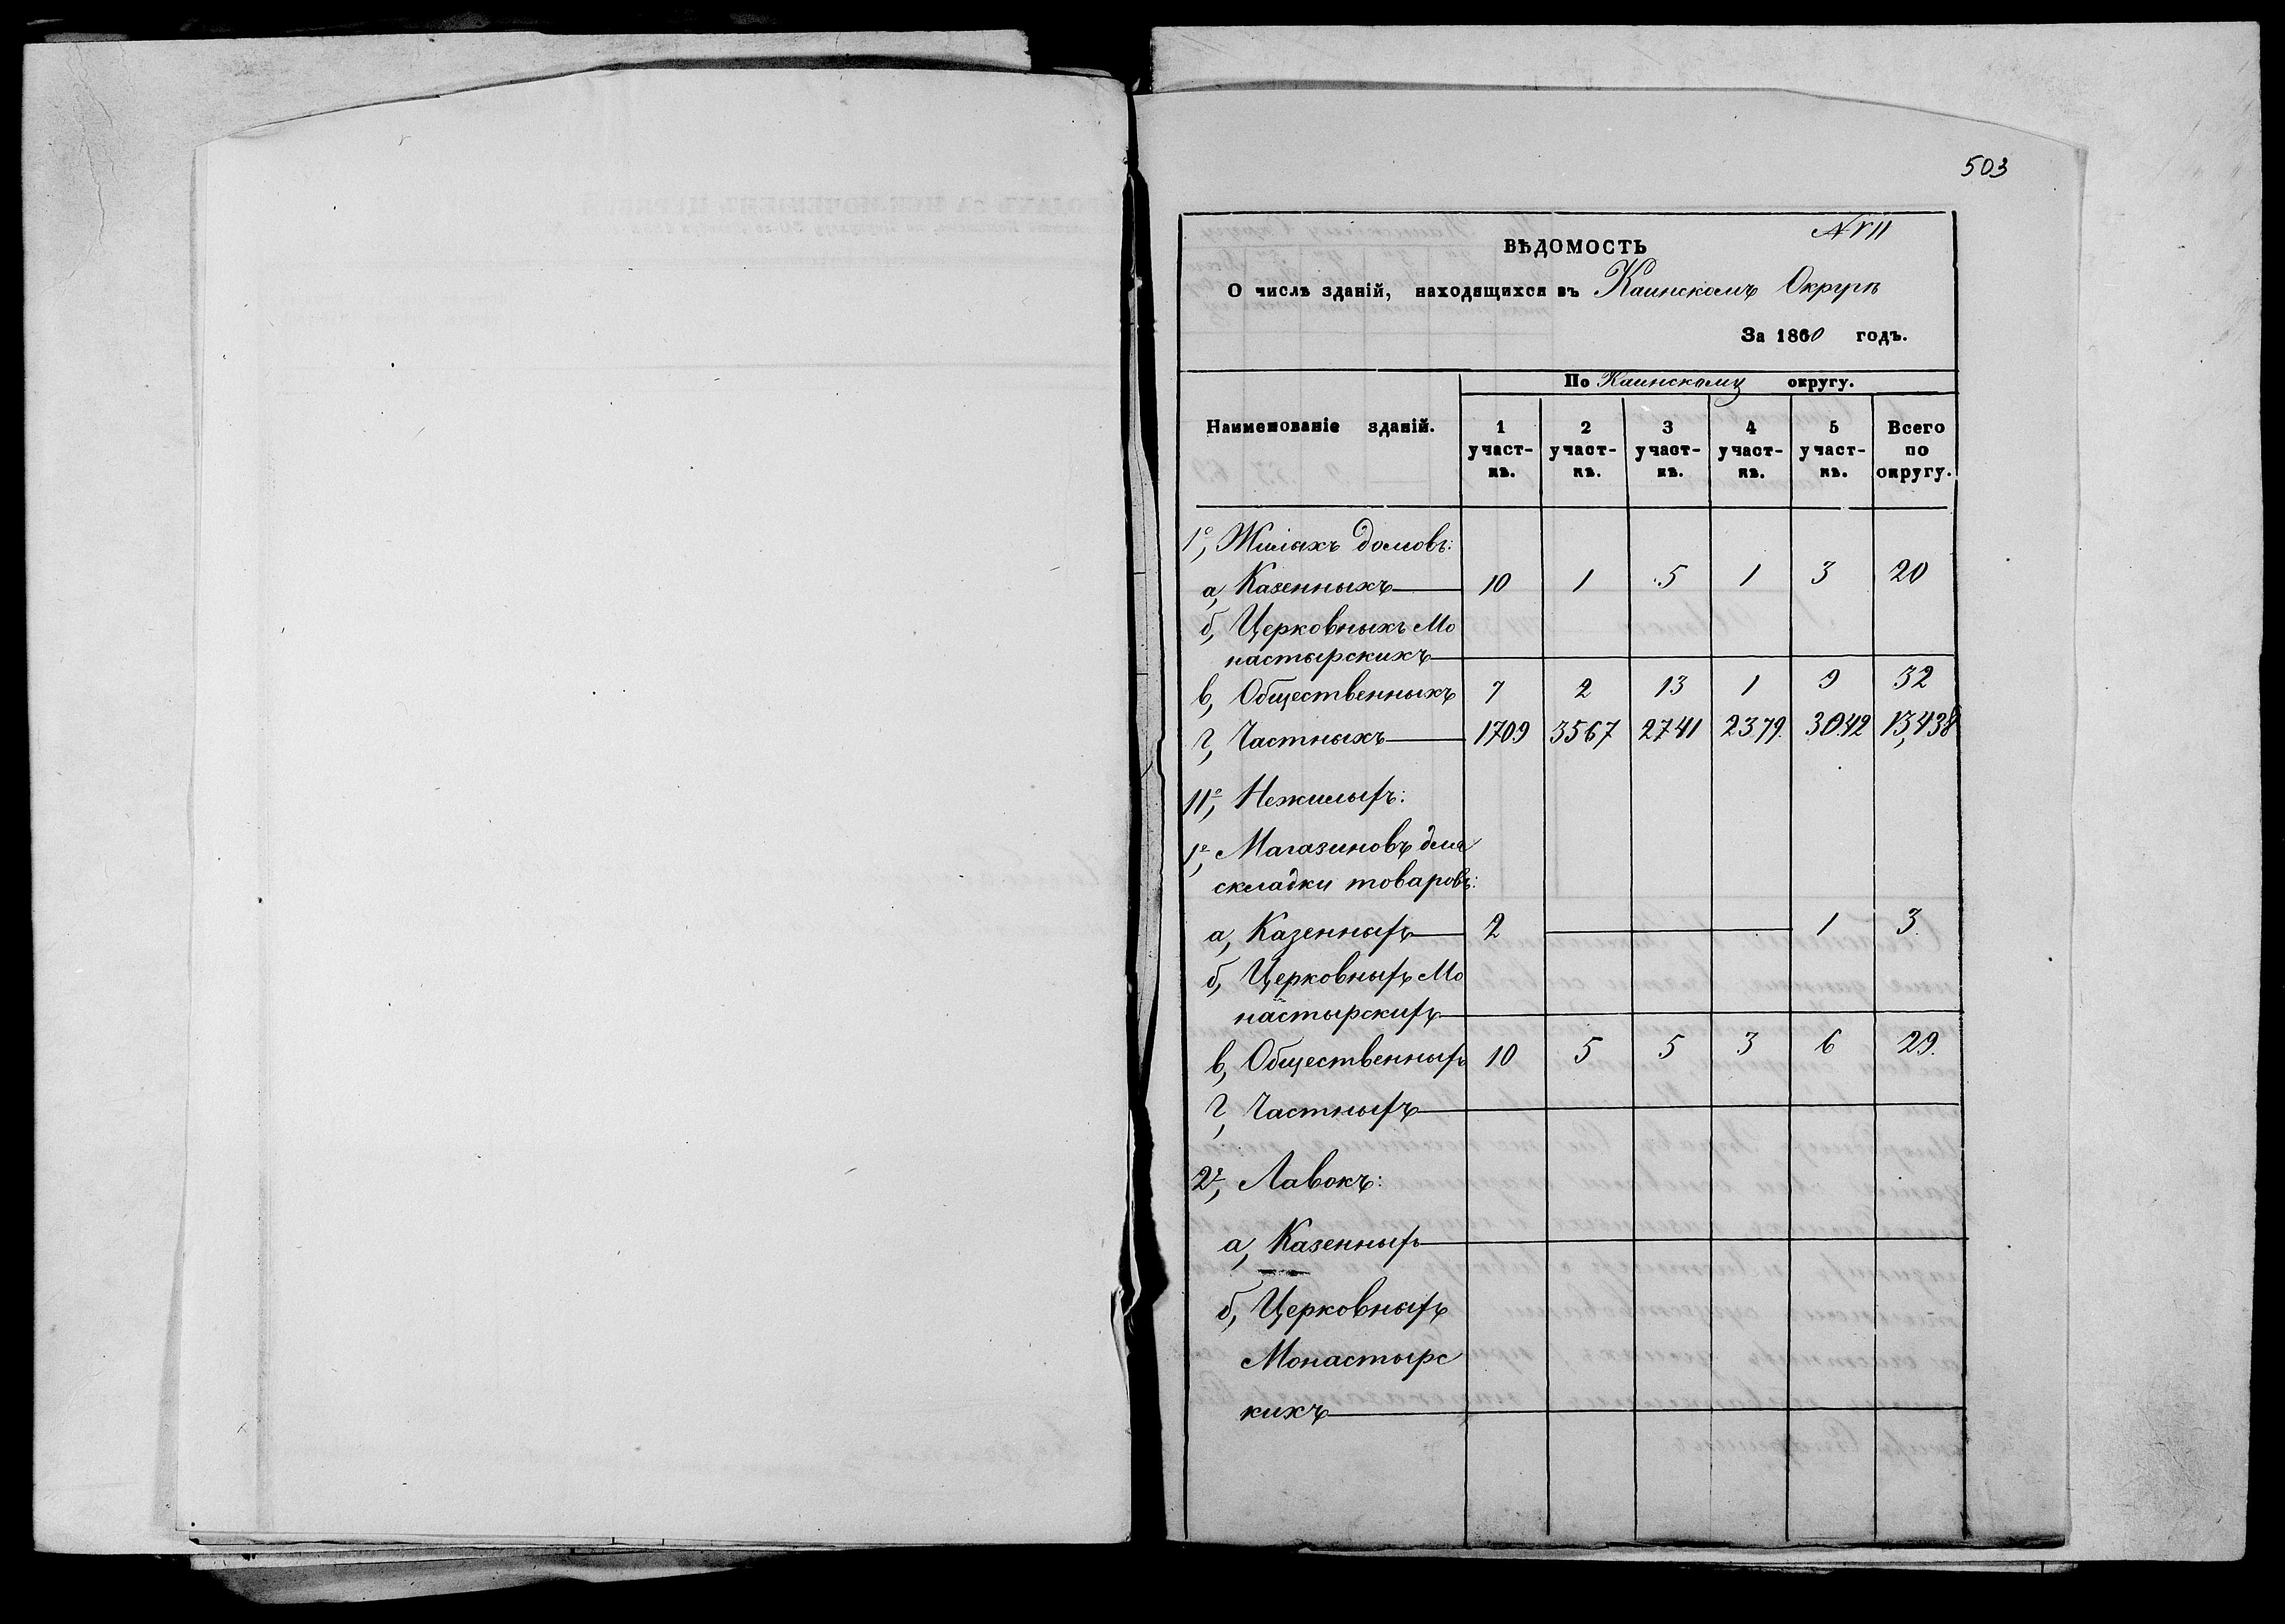 503
№ VII
ВѢДОМОСТЬ
О числѣ зданій, находящихся въ Каинскомъ Округѣ
За 1860 годъ.
По Каинскому округу.
Наименованіе зданій. 1 участ- 2 участ- 3 участ- 4 участ- 5 участ- Всего по
кѣ. кѣ. кѣ. кѣ. кѣ. округу.
1е, Жилыхъ домовъ:
а, Казенныхъ 10 1 5 1 3 20
б, Церковныхъ Мо
настырскихъ
в, Общественныхъ 7 2 13 1 9 32
г, Частныхъ 1709 3567 2741 2379. 3042 13,438
IIе, Нежилыхъ:
1е, Магазиновъ для
складки товаровъ:
а, Казенныхъ 2 1 3
б, Церковныхъ Мо
настырскихъ
в, Общественныхъ 10 5 5 3 6 29.
г, Частныхъ
2е, Лавокъ:
а, Казенныхъ
б, Церковныхъ
Монастырс
кихъ